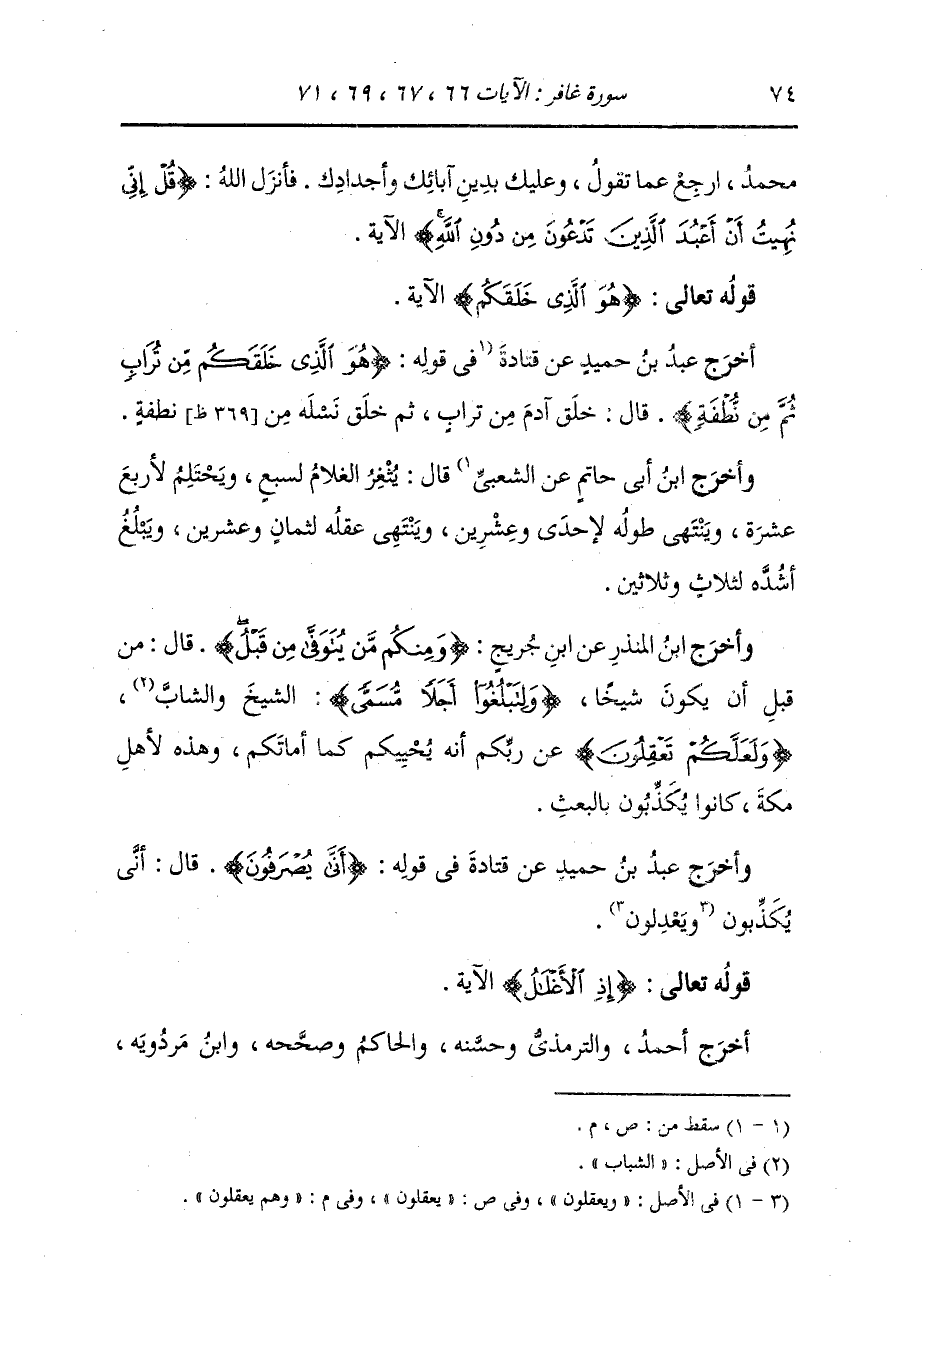 ٧٤ سورة غافر : الآيات ٦٦ ، ٦٧ ، ٦٩ ، ٧١
محمدُ ، ارجِعْ عما تقولُ ، وعليك بدِينِ آبائِك وأجدادِك . فأنزَل اللهُ : ﴿قُلْ إِنِّي
نُهِيتُ أَنْ أَعْبُدَ ٱلَّذِينَ تَدْعُونَ مِن دُونِ ٱللَّهِ﴾ الآية .
قولُه تعالى : ﴿هُوَ ٱلَّذِى خَلَقَكُم﴾ الآية .
أخرَج عبدُ بنُ حميدٍ عن قتادةَ (١فى قولِه : ﴿هُوَ ٱلَّذِى خَلَقَكُم مِّن تُرَابٍ
ثُمَّ مِن نُّطْفَةٍ﴾ . قال : خلَق آدمَ مِن ترابٍ ، ثم خلَق نَسْلَه مِن [٣٦٩ظ] نطفةٍ .
وأخرَج ابنُ أبى حاتمٍ عن الشعبىِّ١) قال : يُثْغِرُ الغلامُ لسبعٍ ، ويَحْتَلِمُ لأربعَ
عشرَة ، ويَنْتَهى طولُه لإحدَى وعِشْرِين ، ويَنْتَهِى عقلُه لثمانٍ وعشرين ، ويَبْلُغُ
أشُدَّه لثلاثٍ وثلاثين .
وأخرَج ابنُ المنذرِ عن ابنِ جُريجٍ : ﴿وَمِنكُم مَّن يُتَوَفَّىٰ مِن قَبْلُۖ﴾ . قال : من
قبلِ أن يكونَ شيخًا ، ﴿وَلِتَبْلُغُوٓا۟ أَجَلًا مُّسَمًّى﴾ : الشيخَ والشابَّ(٢) ،
﴿وَلَعَلَّكُمْ تَعْقِلُونَ﴾ عن ربِّكم أنه يُحْيِيكم كما أماتَكم ، وهذه لأهلِ
مكةَ ، كانوا يُكَذِّبُون بالبعثِ .
وأخرَج عبدُ بنُ حميدٍ عن قتادةَ فى قولِه : ﴿أَنَّىٰ يُصْرَفُونَ﴾ . قال : أنَّى
يُكَذِّبون (٣ويَعْدِلون٣) .
قولُه تعالى : ﴿إِذِ ٱلْأَغْلَٰلُ﴾ الآية .
أخرَج أحمدُ ، والترمذىُّ وحسَّنه ، والحاكمُ وصحَّحه ، وابنُ مَردُويَه ،
(١ - ١) سقط من : ص ، م .
(٢) فى الأصل : « الشباب » .
(٣ - ١) فى الأصل : « ويعقلون » ، وفى ص : « يعقلون » ، وفى م : « وهم يعقلون » .